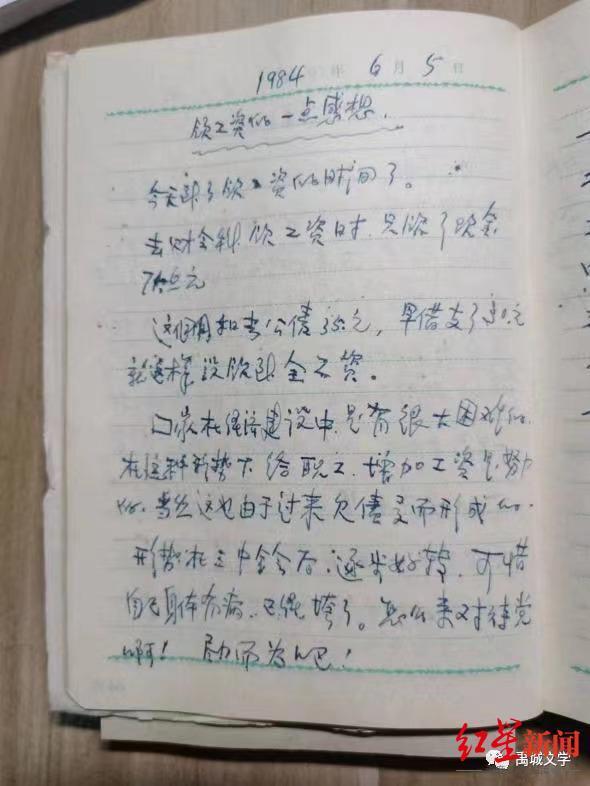 1984年6月5日
领工资的一点感想.
今天到了领工资的时间了。
去财会科领工资时.只领了现金
元
这个月扣去公债35元,早借支了30元
就这样没领到全工资。
国家在经济建设中.是有很大困难的.
在这种形势下给职工.增加工资是努力
的.当然这也由于过来欠债多而形成的.
形势在三中全会后.逐步好转.可惜
自己身体有病.已经垮了。怎么来对待党
啊!尽力而为吧!
红星新闻
禹城文学